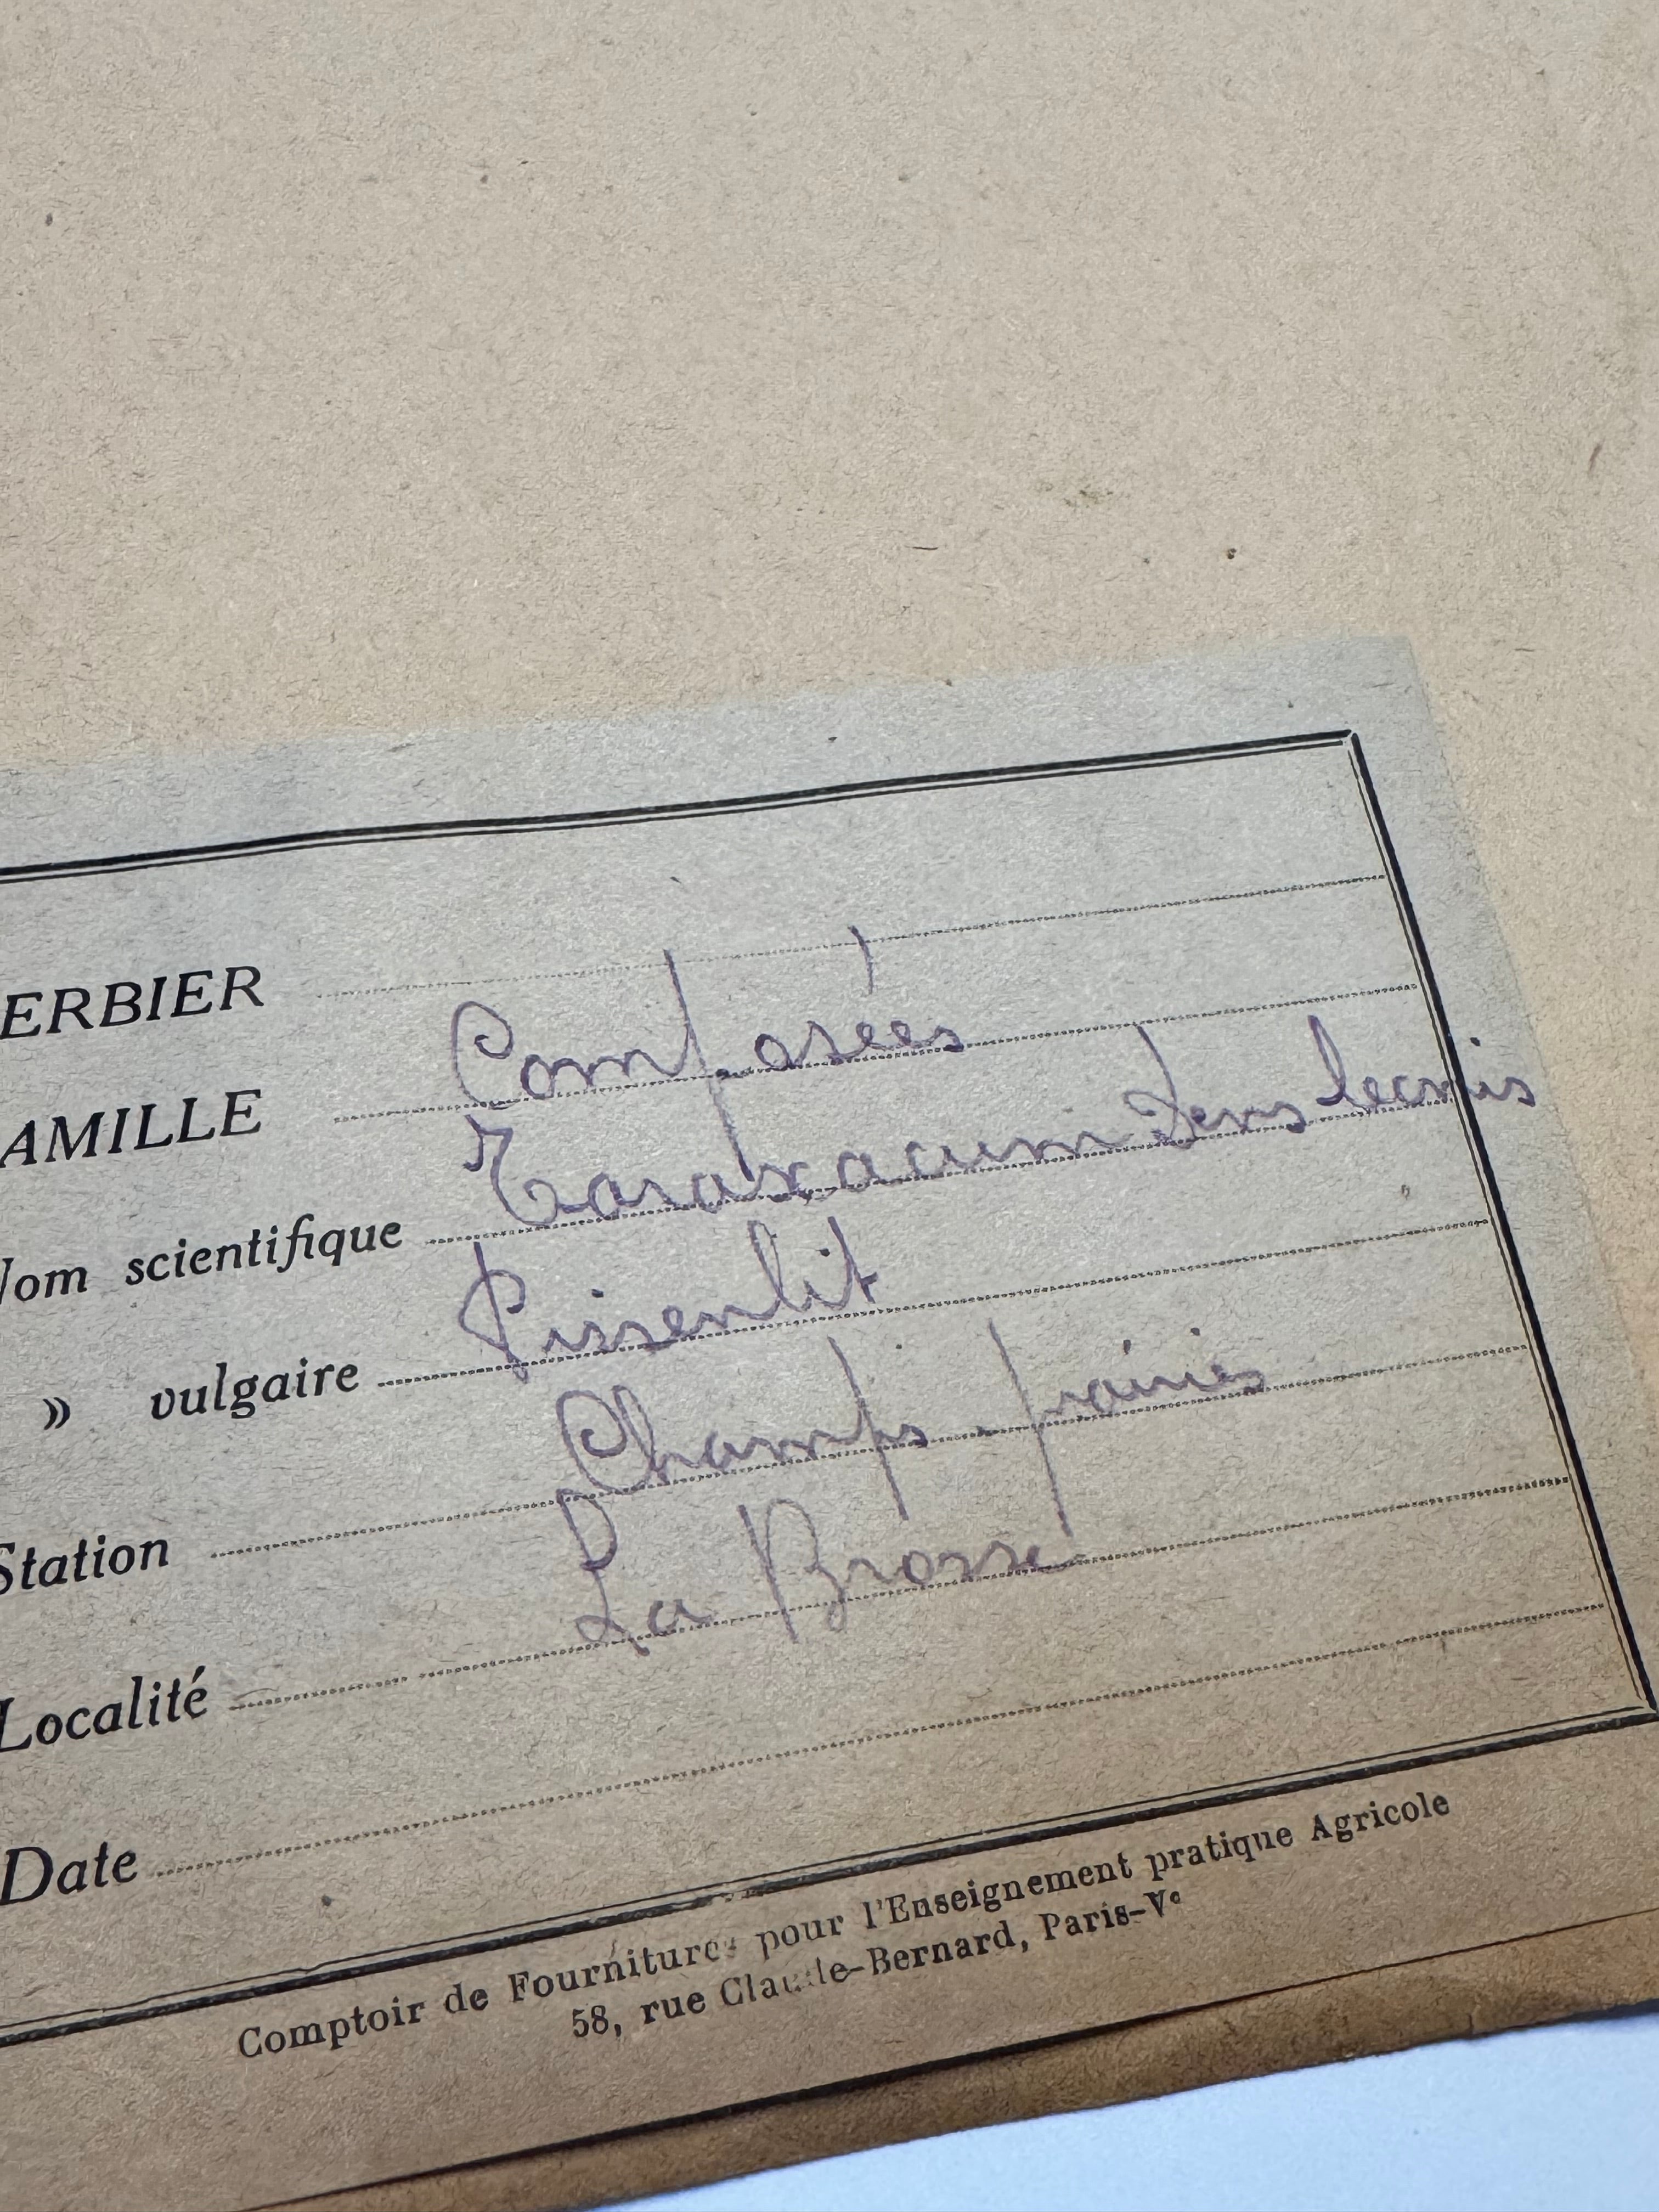 ERBIER
AMILLE Composées
Nom scientifique Taraxacum Dens leonis
» vulgaire Pissenlit
Station Champs - prairies
Localité La Brosse
Date
Comptoir de Fournitures pour l'Enseignement pratique Agricole
58, rue Claude-Bernard, Paris-Vᵉ